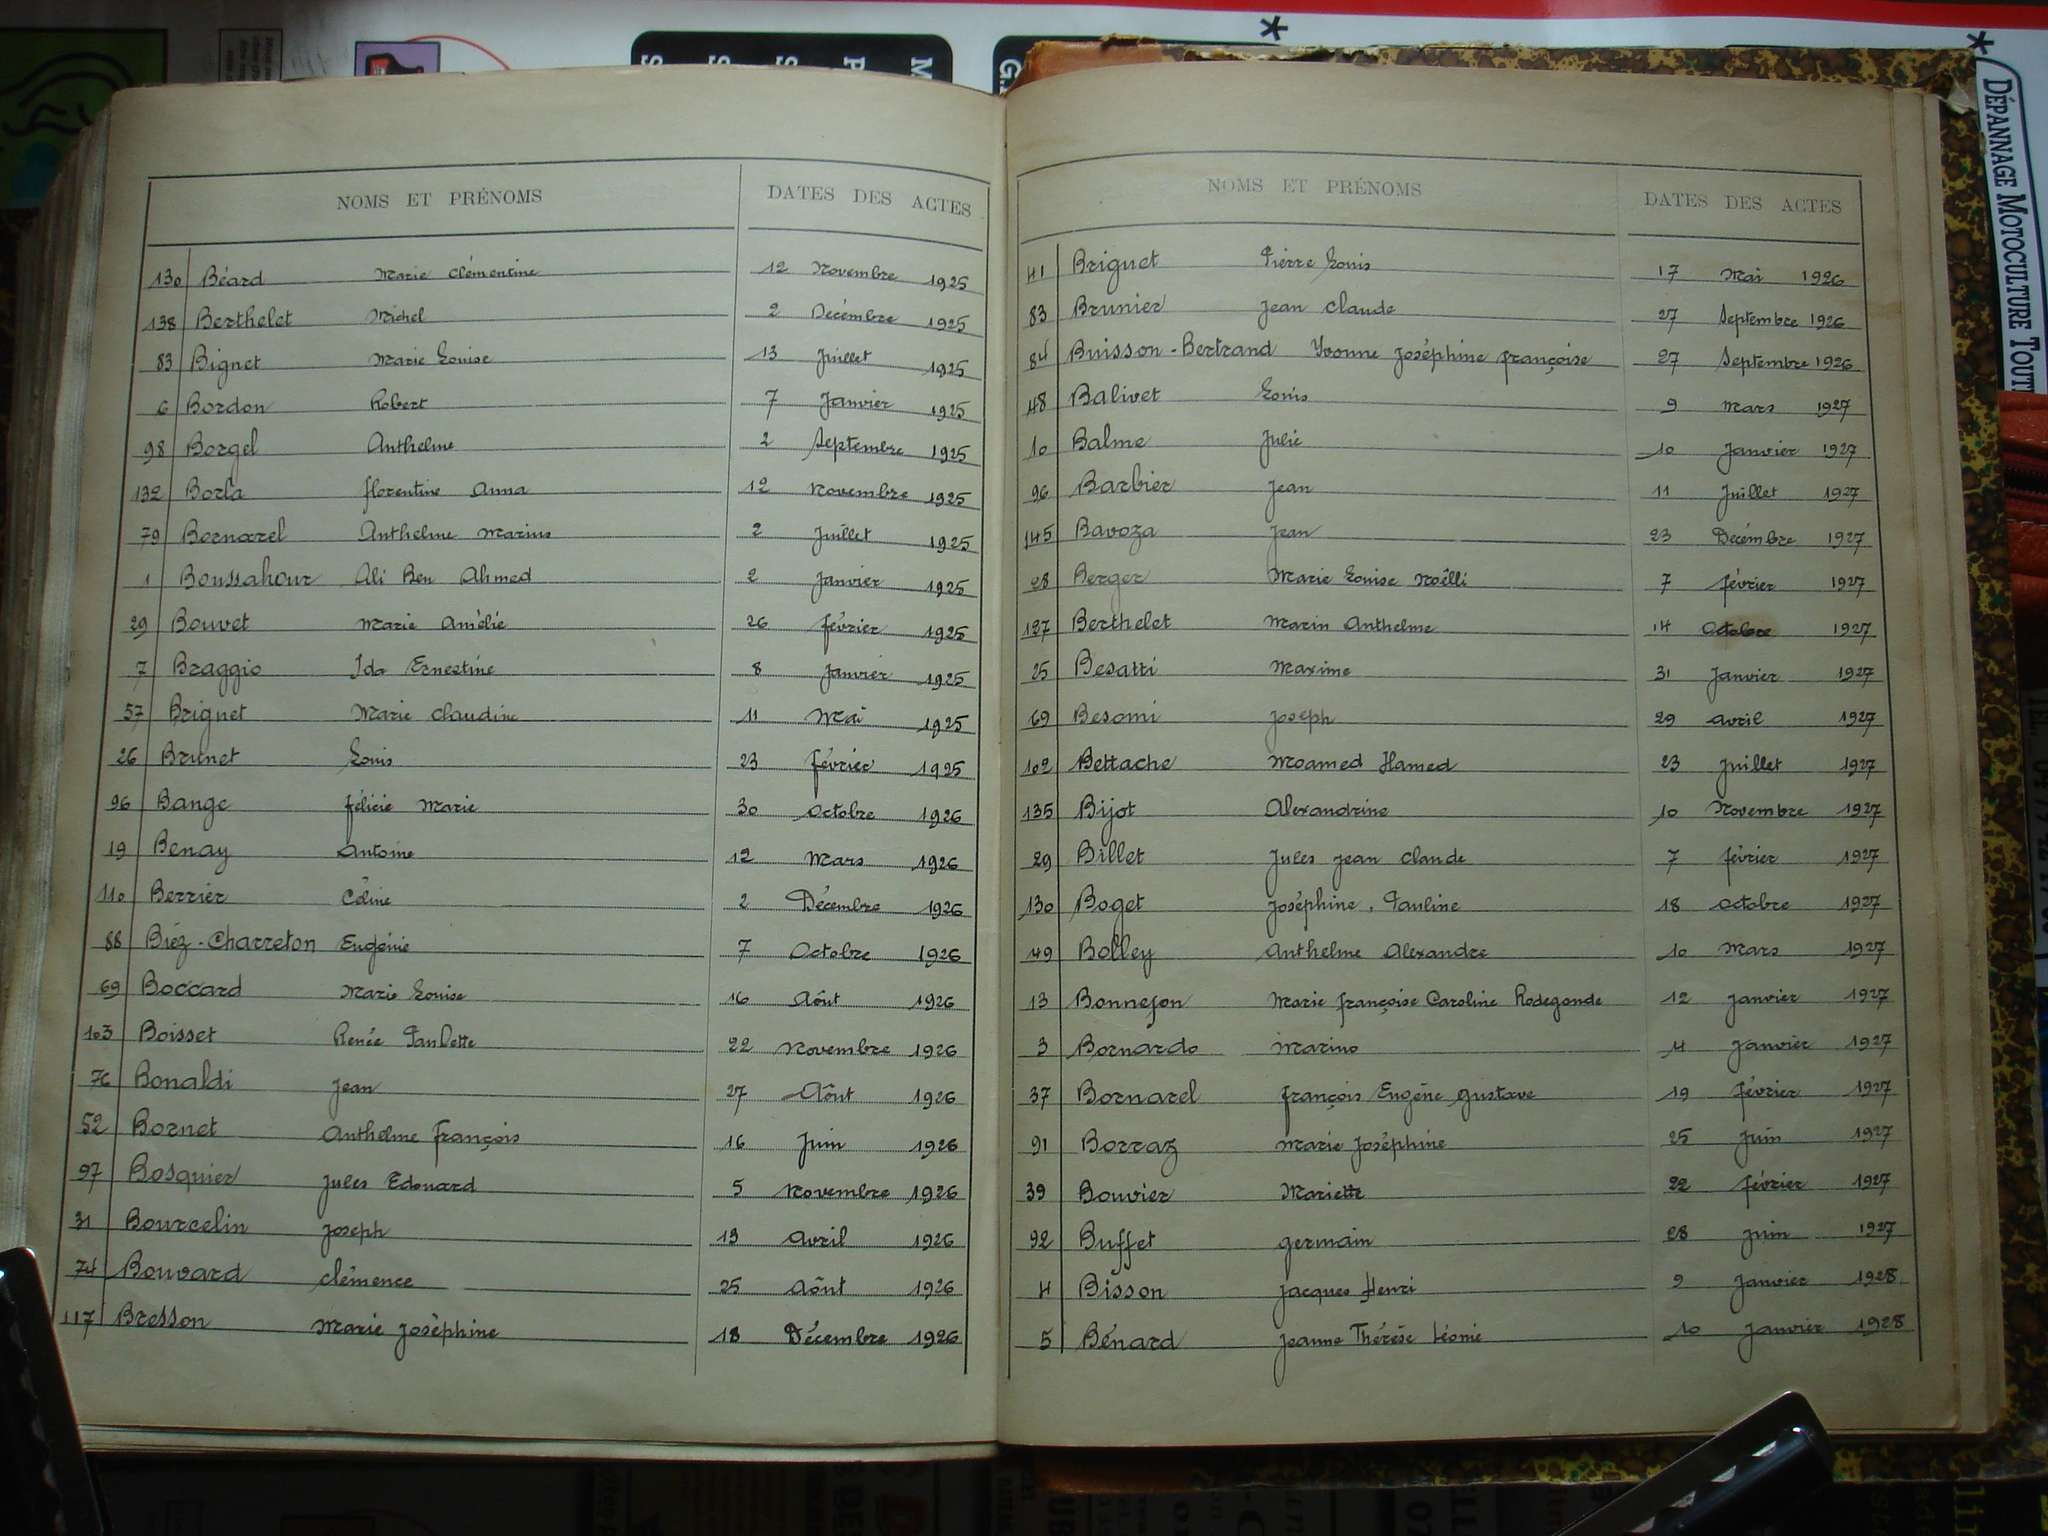 DÉPANNAGE MOTOCULTURE TOUT
NOMS ET PRÉNOMS DATES DES ACTES
130 Béard Marie Clémentine 12 Novembre 1925
138 Berthelet Michel 2 Décembre 1925
83 Bignet Marie Louise 13 Juillet 1925
6 Bordon Robert 7 Janvier 1925
98 Borgel Anthelme 2 Septembre 1925
132 Borla Florentine Anna 12 Novembre 1925
79 Bornarel Anthelme Marius 2 Juillet 1925
1 Boussahour Ali Ben Ahmed 2 Janvier 1925
29 Bouvet Marie Amélie 26 Février 1925
7 Braggio Ida Ernestine 8 Janvier 1925
57 Brignet Marie Claudine 11 Mai 1925
26 Brunet Louis 23 Février 1925
96 Bange Félicie Marie 30 Octobre 1926
19 Benay Antoine 12 Mars 1926
110 Berrier Céline 2 Décembre 1926
88 Biéz-Charreton Eugénie 7 Octobre 1926
69 Boccard Marie Louise 16 Aôut 1926
103 Boisset Renée Paulette 22 Novembre 1926
76 Bonaldi Jean 27 Aôut 1926
52 Bornet Anthelme François 16 Juin 1926
97 Bosquier Jules Edouard 5 Novembre 1926
31 Bourcelin Joseph 13 Avril 1926
74 Bouvard Clémence 25 Aôut 1926
117 Bresson Marie Joséphine 18 Décembre 1926
NOMS ET PRÉNOMS DATES DES ACTES
41 Briguet Pierre Louis 17 Mai 1926
83 Brunier Jean Claude 27 Septembre 1926
84 Buisson-Bertrand Yvonne Joséphine Françoise 27 Septembre 1926
48 Balivet Louis 9 Mars 1927
10 Balme Julie 10 Janvier 1927
96 Barbier Jean 11 Juillet 1927
145 Bavoza Jean 23 Décembre 1927
28 Berger Marie Louise Noëlli 7 Février 1927
127 Berthelet Marin Anthelme 14 Octobre 1927
25 Besatti Maxime 31 Janvier 1927
69 Besomi Joseph 29 Avril 1927
102 Bettache Moamed Hamed 23 Juillet 1927
135 Bijot Alexandrine 10 Novembre 1927
29 Billet Jules Jean Claude 7 Février 1927
130 Boget Joséphine, Pauline 18 Octobre 1927
49 Bolley Anthelme Alexandre 10 Mars 1927
13 Bonnefon Marie Françoise Caroline Rodegonde 12 Janvier 1927
3 Bornardo Marino 4 Janvier 1927
37 Bornarel François Eugène Gustave 19 Février 1927
91 Borraz Marie Joséphine 25 Juin 1927
39 Bouvier Mariette 22 Février 1927
92 Buffet Germain 28 Juin 1927
4 Bisson Jacques Henri 9 Janvier 1928
5 Bénard Jeanne Thérèse Léonie 10 Janvier 1928